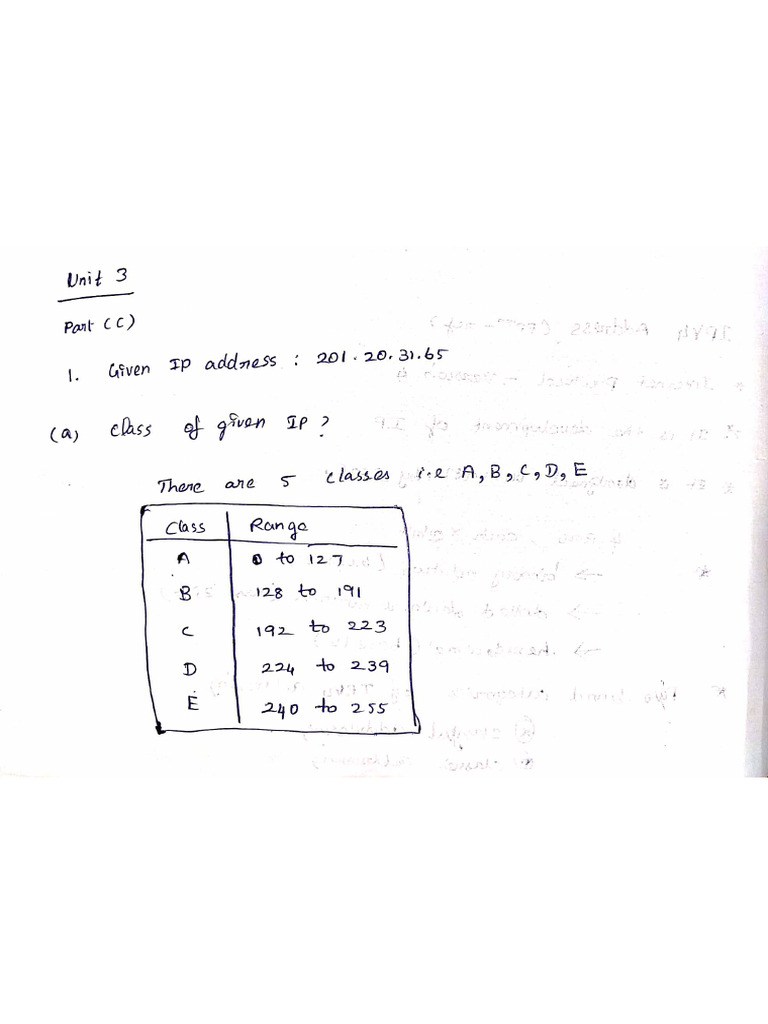 Unit 3
Part (C)
1. Given IP address : 201.20.31.65
(a) class of given IP?
There are 5 classes i.e A, B, C, D, E
Class Range
A 0 to 127
B 128 to 191
C 192 to 223
D 224 to 239
E 240 to 255